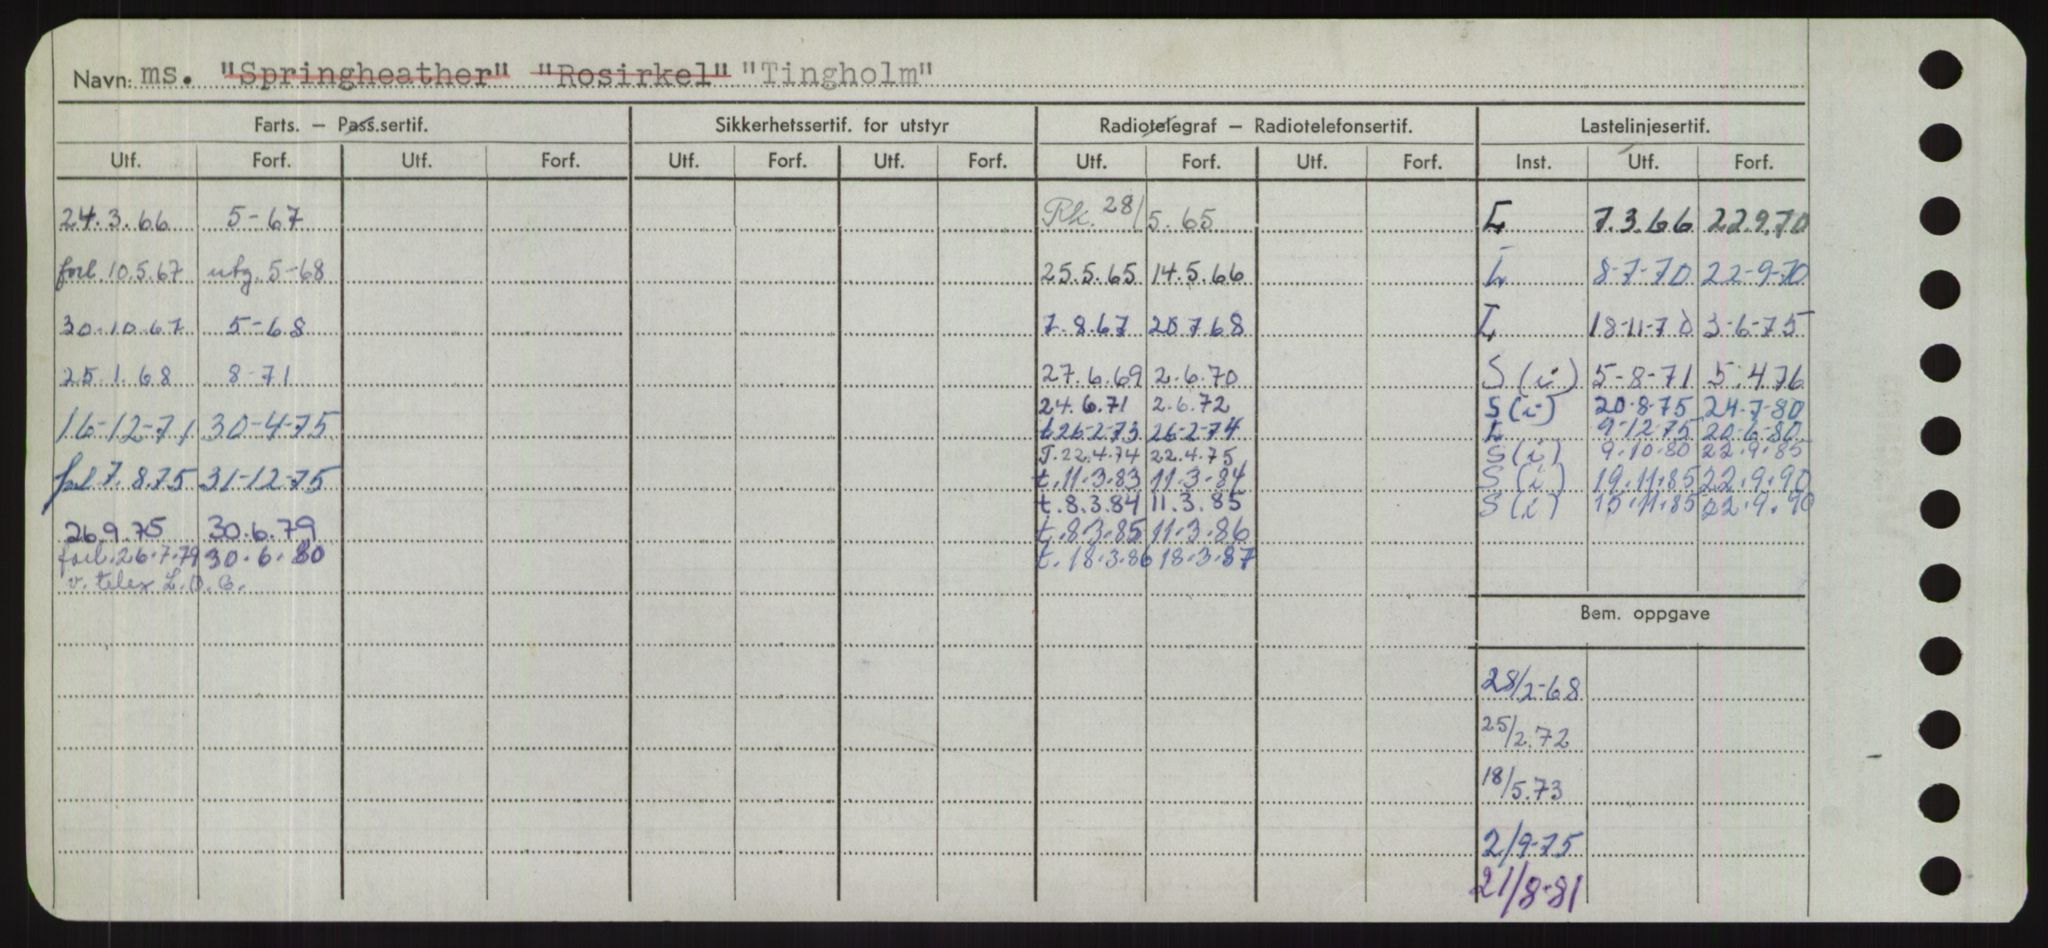 Navn: ms. "Springheather" "Rosirkel" "Tingholm"
Farts. – Pass.sertif. Sikkerhetssertif. for utstyr Radiotelegraf – Radiotelefonsertif. Lastelinjesertif.
Utf. Forf. Utf. Forf. Utf. Forf. Utf. Forf. Utf. Forf. Utf. Forf. Inst. Utf. Forf.
24.3.66 5-67 Rk. 28/5.65 L 7.3.66 22.9.70
forl. 10.5.67 utg. 5-68 25.5.65 14.5.66 L 8-7-70 22-9-70
30.10.67 5-68 7.8.67 20.7.68 L 18-11-70 3-6-75
25.1.68 8-71 27.6.69 2.6.70 S(i) 5-8-71 5.4.76
24.6.71 2.6.72 S(i) 20-8-75 24-7-80
16-12-71 30-4-75 t 26-2-73 26-2-74 L 9-12-75 20-6-80
T. 22.4.74 22.4.75 S(i) 9.10.80 22.9.85
forl 7.8.75 31-12-75 t. 11.3.83 11.3.84 S(i) 19.11.85 22.9.90
t. 8.3.84 11.3.85 S(i) 15.11.85 22.9.90
26.9.75 30.6.79 t. 8.3.85 11.3.86
forl. 26.7.79 30.6.80 t. 18.3.86 18.3.87
v. telex
Bem. oppgave
28/2-68
25/2.72
18/5.73
2/9-75
21/8-81